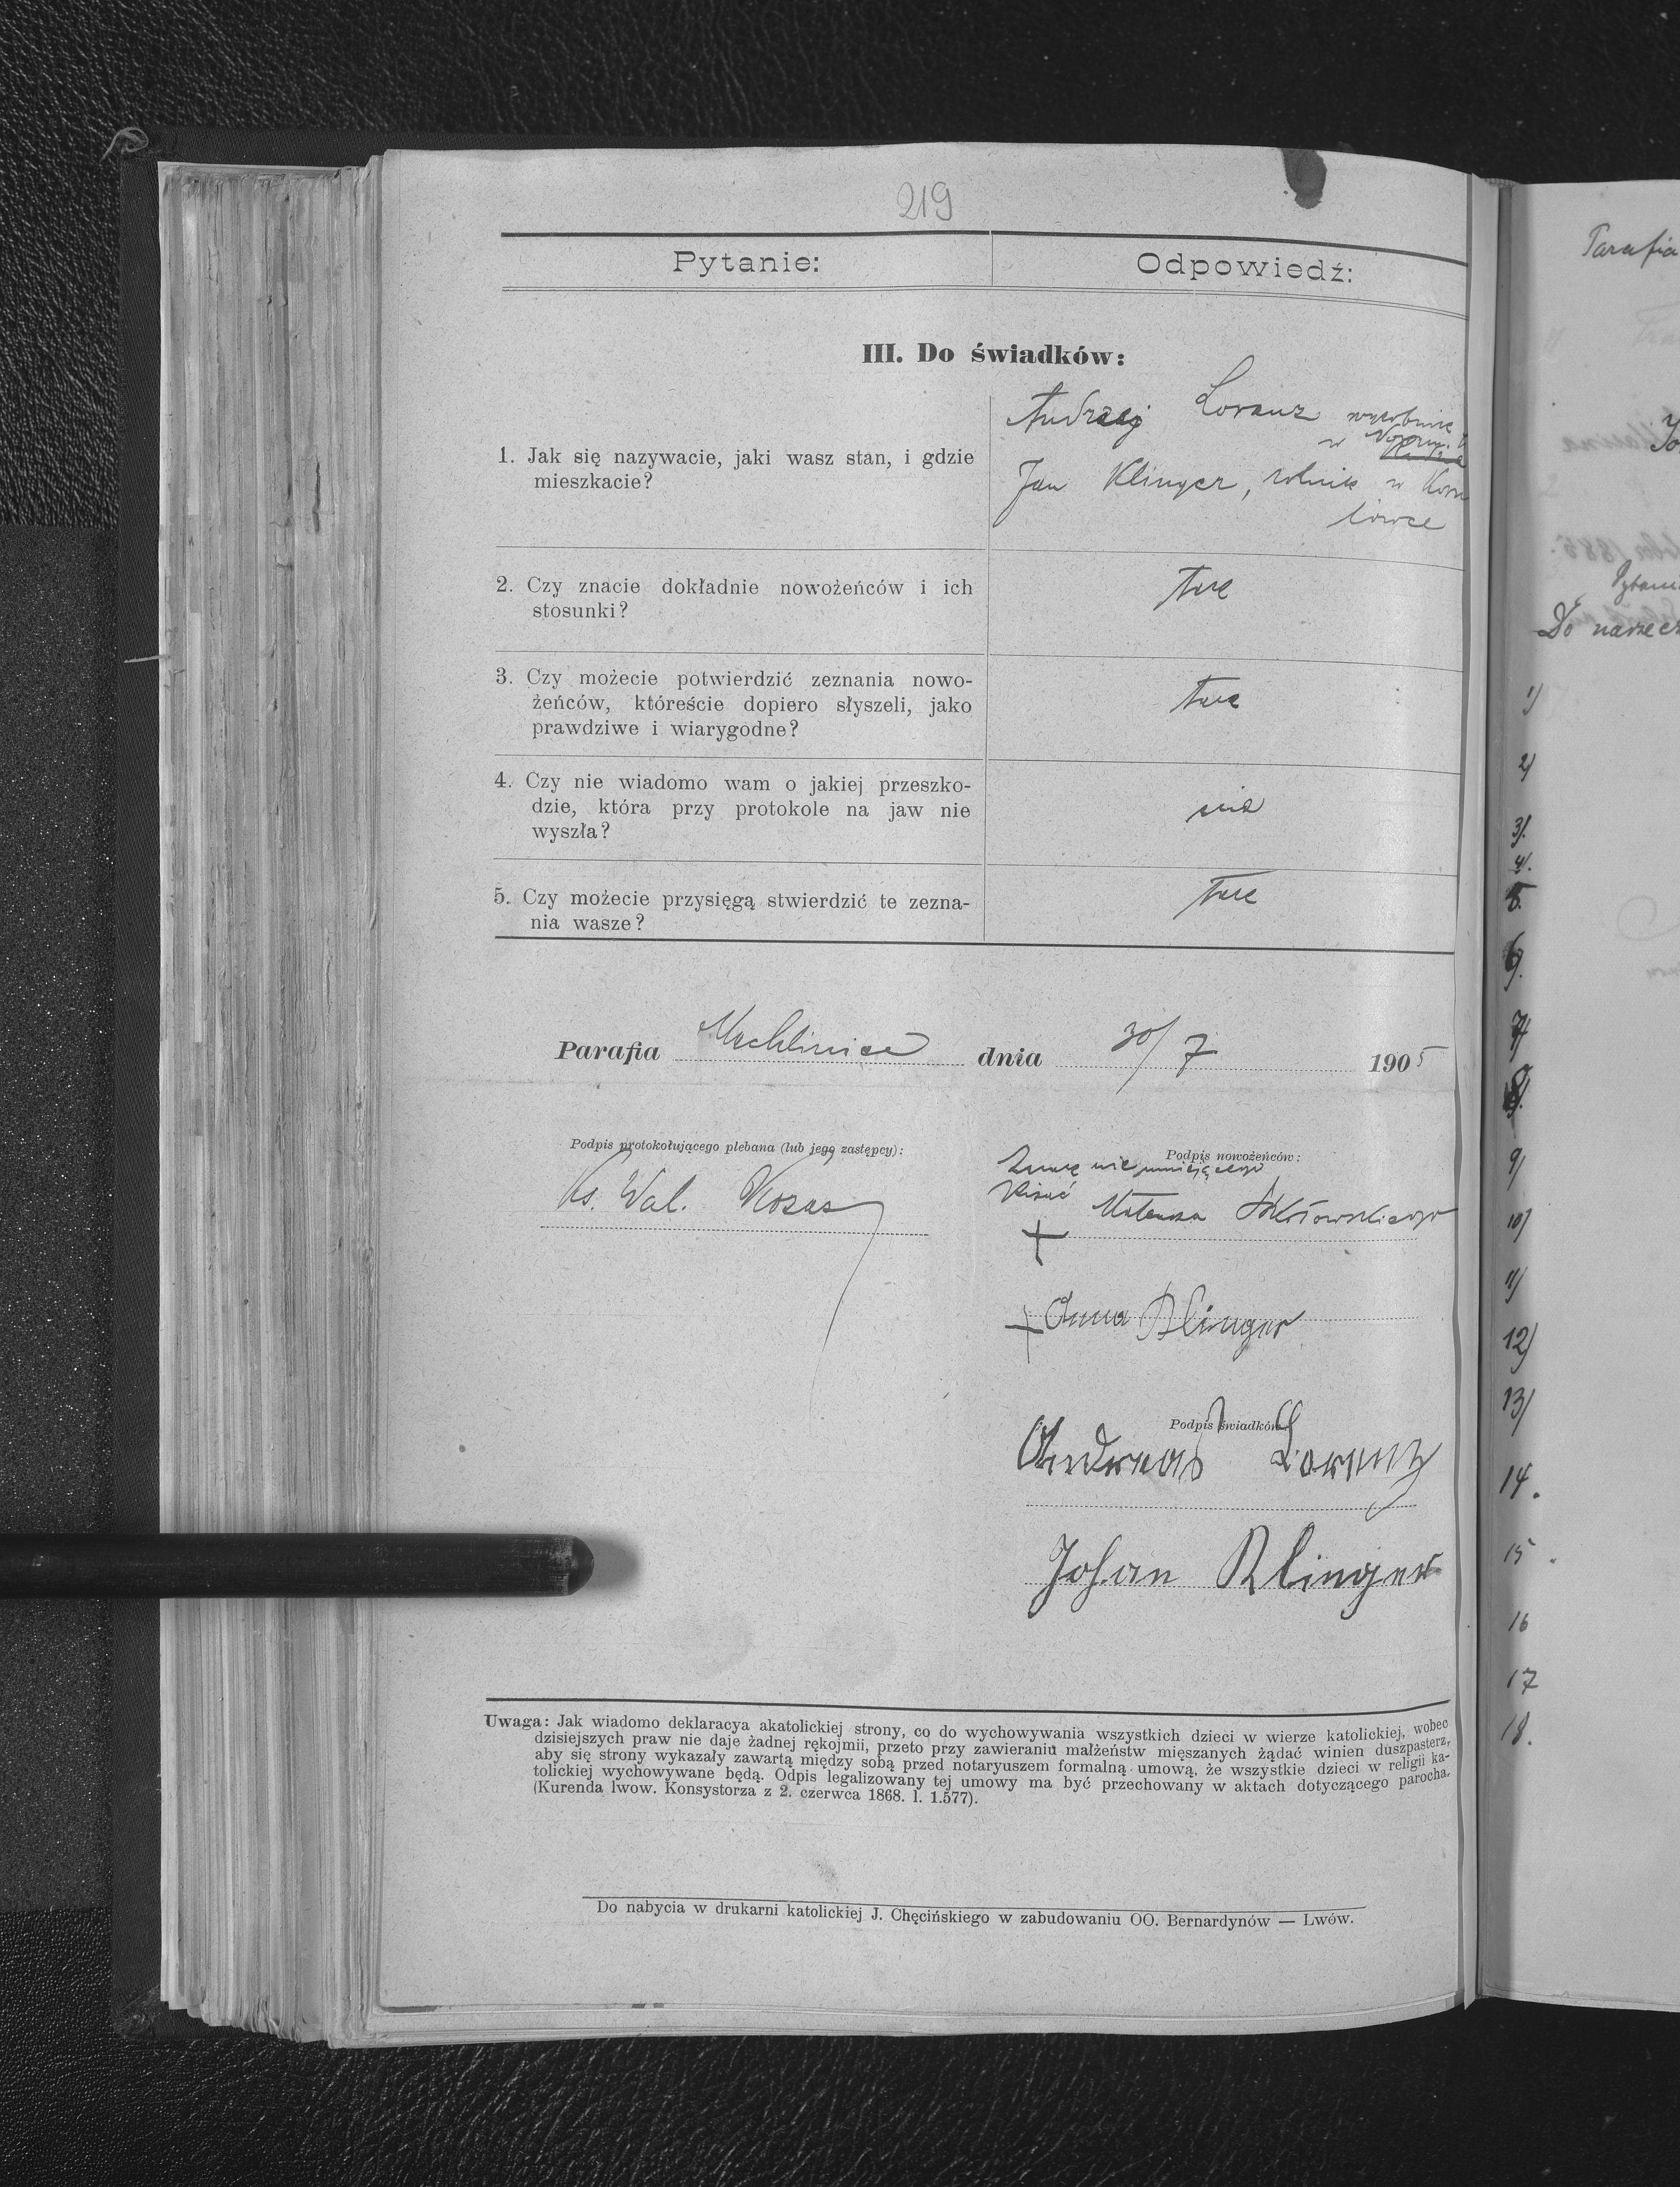 219
Pytanie: Odpowiedź:
III. Do świadków:
1. Jak się nazywacie, jaki wasz stan, i gdzie
mieszkacie?
Andrzej Loranz
w
Jan Klinger, rolnik w
2. Czy znacie dokładnie nowożeńców i ich
stosunki?
Tak
3. Czy możecie potwierdzić zeznania nowo-
żeńców, któreście dopiero słyszeli, jako
prawdziwe i wiarygodne?
tak
4. Czy nie wiadomo wam o jakiej przeszko-
dzie, która przy protokole na jaw nie
wyszła?
nie
5. Czy możecie przysięgą stwierdzić te zezna-
nia wasze?
Tak
Parafia dnia 30/7 1905
Podpis protokołującego plebana (lub jego zastępcy):
Ks. Wal.
Podpis nowożeńców:
nie umiejącego
pisać Mateusza
+
+ Anna Klinger
Podpis świadków:
Andreas Lorenz
Johan Klinger
Uwaga: Jak wiadomo deklaracya akatolickiej strony, co do wychowywania wszystkich dzieci w wierze katolickiej, wobec
dzisiejszych praw nie daje żadnej rękojmii, przeto przy zawieraniu małżeństw mięszanych żądać winien duszpasterz,
aby się strony wykazały zawartą między sobą przed notaryuszem formalną umową, że wszystkie dzieci w religii ka-
tolickiej wychowywane będą. Odpis legalizowany tej umowy ma być przechowany w aktach dotyczącego parocha.
(Kurenda lwow. Konsystorza z 2. czerwca 1868. l. 1.577).
Do nabycia w drukarni katolickiej J. Chęcińskiego w zabudowaniu OO. Bernardynów — Lwów.
Parafia
Do narzecz
1)
2)
3).
4).
5.
6).
7)
8).
9)
10)
11)
12)
13)
14.
15.
16
17
18.